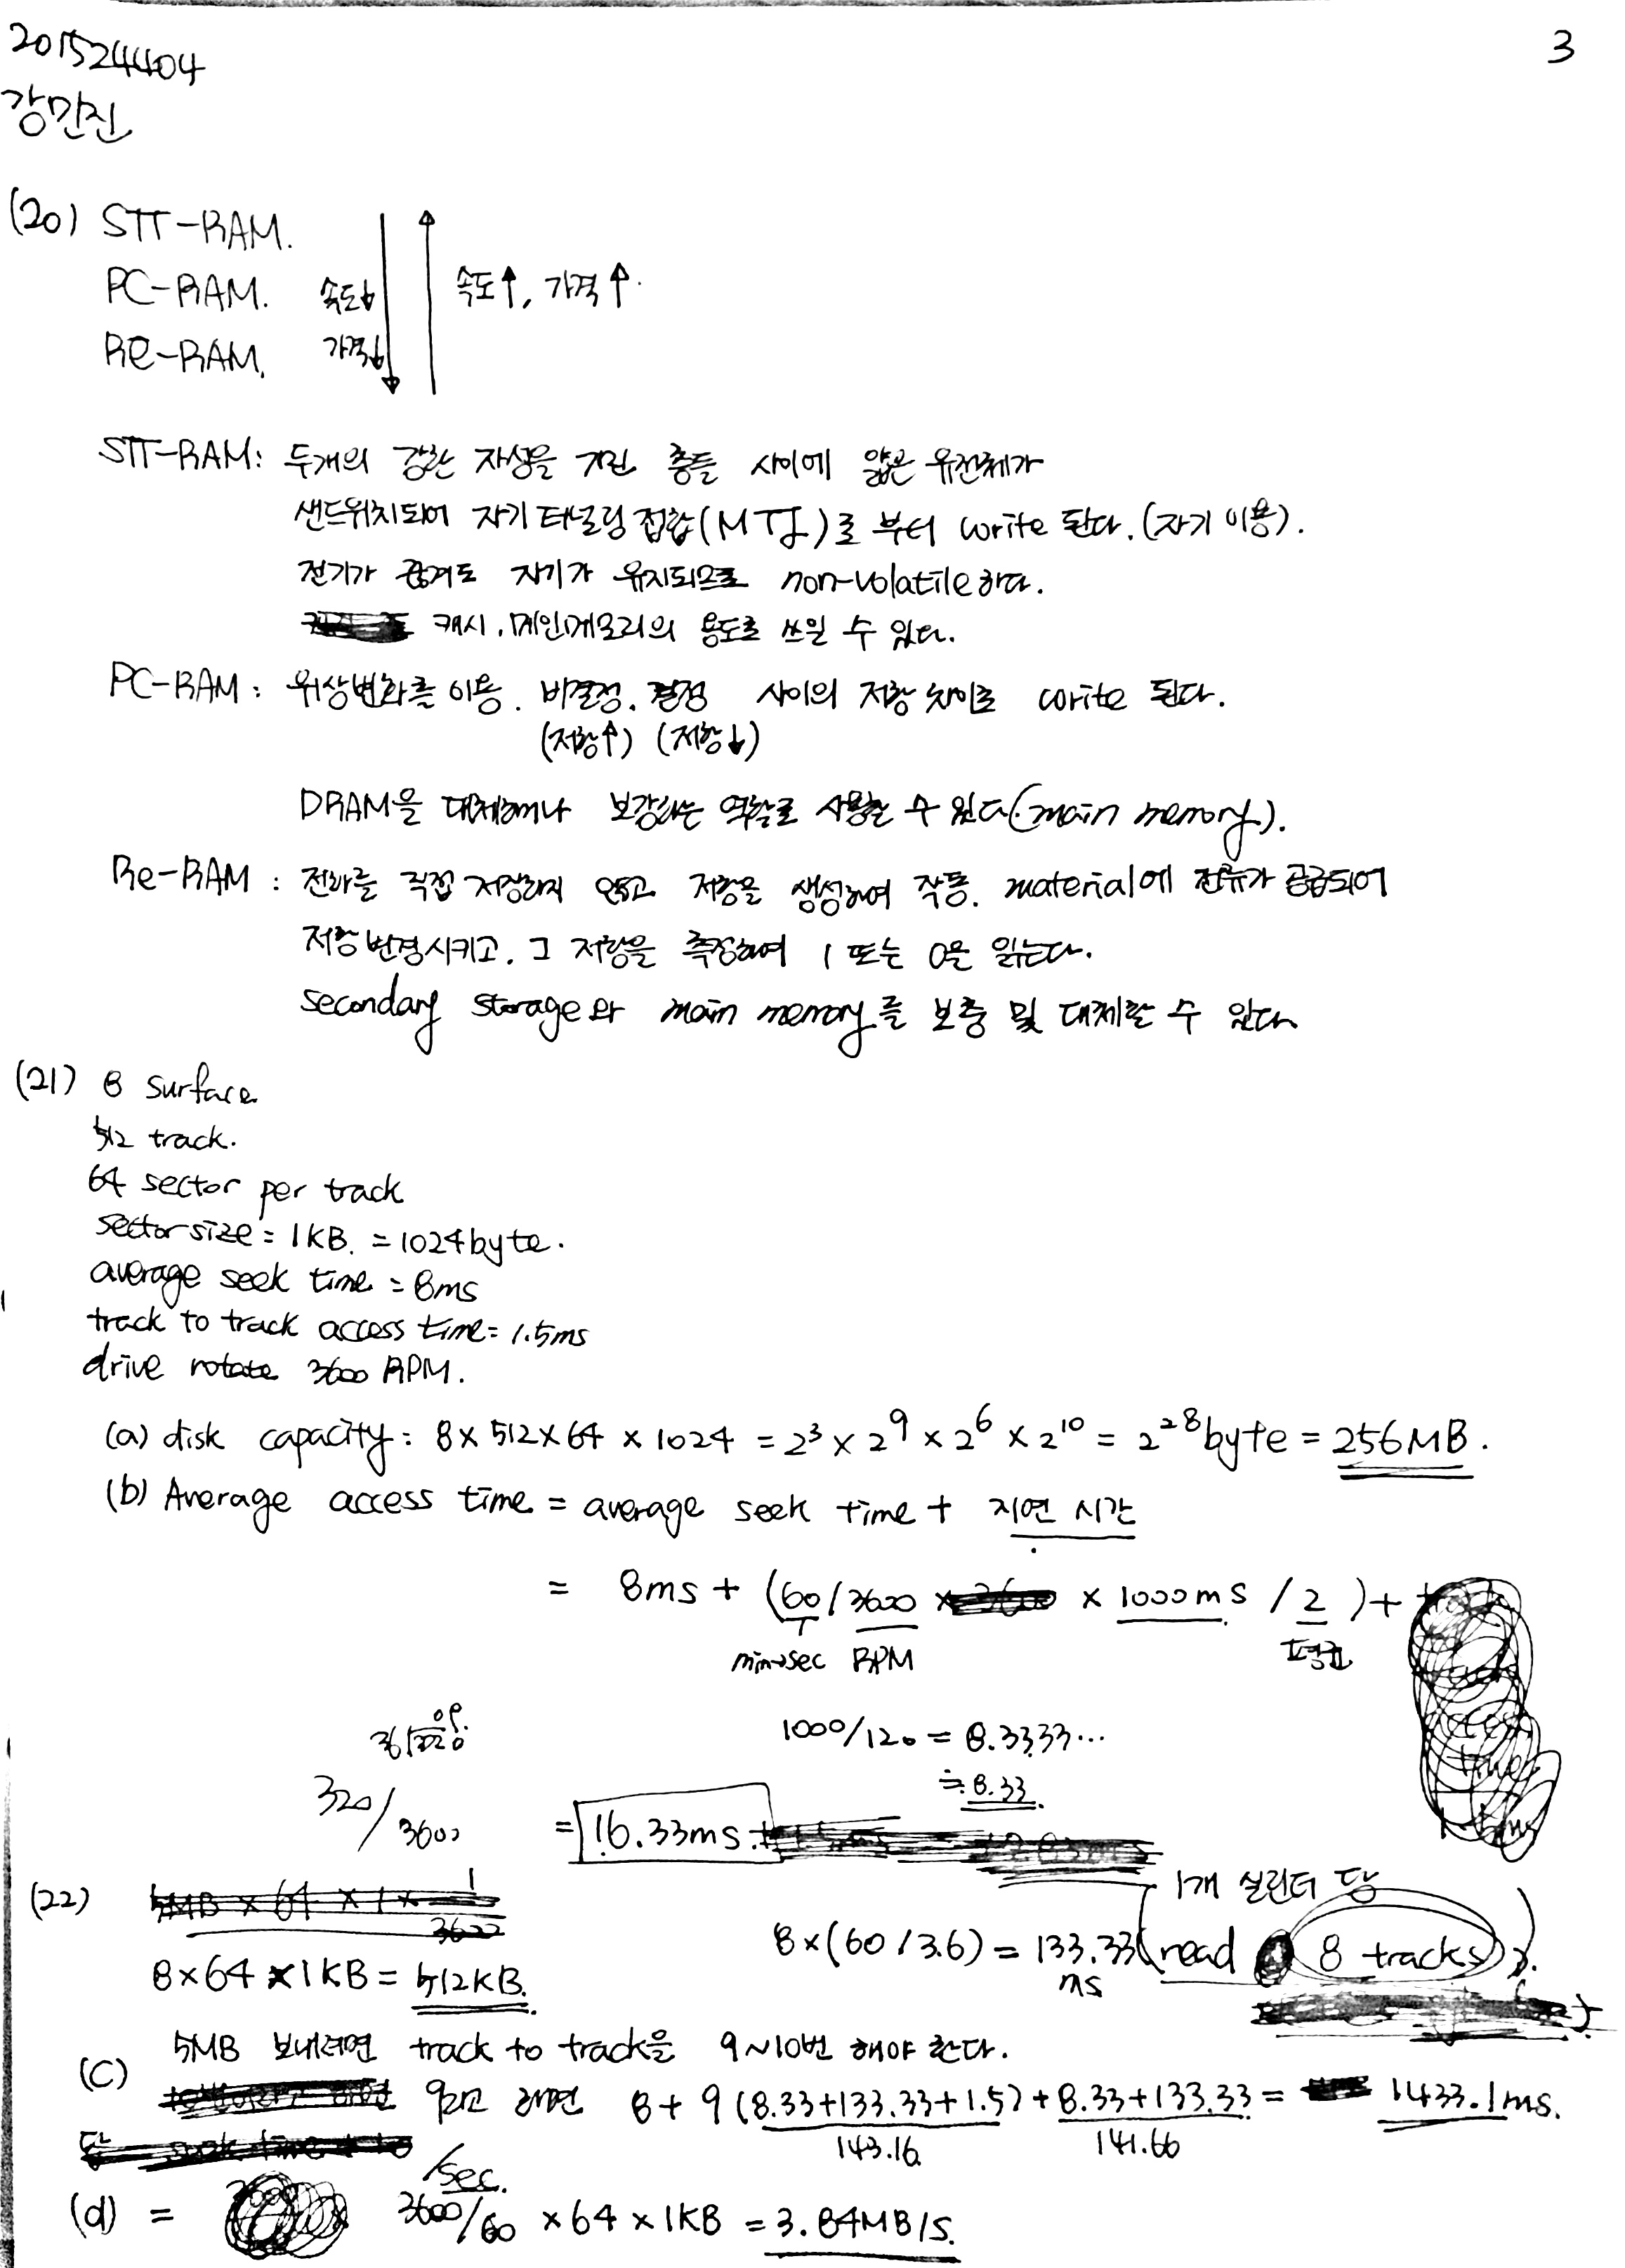 201524404
3
강민진
(20) STT-RAM.
PC-RAM. 속도↓ 속도↑, 가격↑.
Re-RAM. 가격↓
STT-RAM: 두개의 강한 자성을 가진 층들 사이에 얇은 유전체가
샌드위치되어 자기터널링접합(MTJ)로 부터 write 된다. (자기 이용).
전기가 끊겨도 자기가 유지되므로 non-volatile하다.
캐시, 메인메모리의 용도로 쓰일 수 있다.
PC-RAM: 위상변화를 이용. 비결정, 결정 사이의 저항 차이로 write 된다.
(저항↑) (저항↓)
DRAM을 대체하거나 보강하는 역할로 사용될 수 있다.(main memory).
Re-RAM: 전하를 직접 저장하지 않고 저항을 생성하여 작동. material에 전류가 공급되어
저항변경시키고, 그 저항을 측정하여 1 또는 0을 읽는다.
secondary storage와 main memory를 보충 및 대체할 수 있다
(21) 8 surface
512 track.
64 sector per track
sector size = 1KB. = 1024byte.
average seek time = 8ms
track to track access time = 1.5ms
drive rotate 3600 RPM.
(a) disk capacity: 8 × 512 × 64 × 1024 = 2³ × 2⁹ × 2⁶ × 2¹⁰ = 2²⁸byte = 256MB.
(b) Average access time = average seek time + 지연 시간
= 8ms + (60/3600 × 1000ms / 2) +
min→sec RPM 평균
36)320 09.
1000/120 = 8.3333...
≒ 8.33.
320/3600
= 16.33ms.
1개 실린더 당
(22)
8×(60/3.6) = 133.33 (read 8 tracks).
ms
8×64×1KB = 512KB.
5MB 보내려면 track to track을 9~10번 해야 한다.
(c) 9라고 하면 8 + 9 (8.33+133.33+1.5) + 8.33+133.33 = 1433.1ms.
143.16 141.66
/sec.
(d) = 3600/60 × 64 × 1KB = 3.84MB/S.